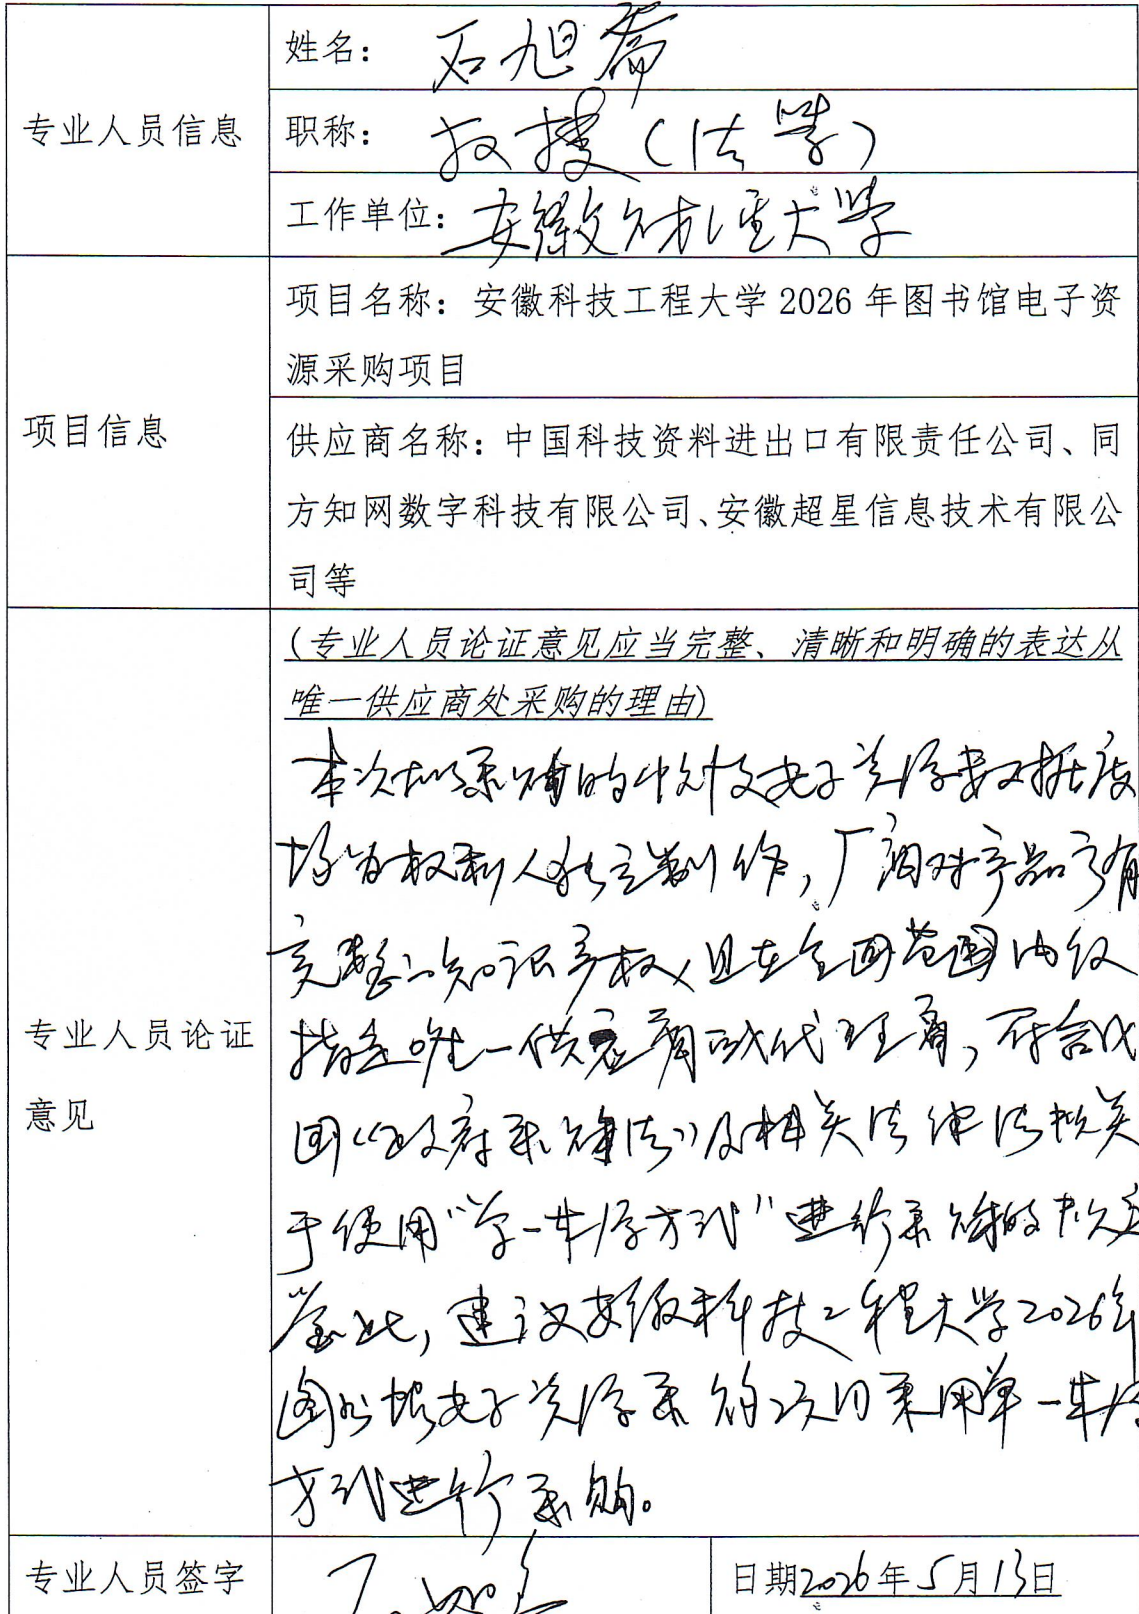 专业人员信息
姓名：石旭斋
职称：教授（法学）
工作单位：安徽财经大学
项目信息
项目名称：安徽科技工程大学2026年图书馆电子资
源采购项目
供应商名称：中国科技资料进出口有限责任公司、同
方知网数字科技有限公司、安徽超星信息技术有限公
司等
专业人员论证
意见
（专业人员论证意见应当完整、清晰和明确的表达从
唯一供应商处采购的理由）
本次拟采购的中外文电子资源数据库
均为权利人独立制作，厂商对产品享有
完整的知识产权，且在全国范围内仅
指定唯一供应商或代理商，符合我
国《政府采购法》及相关法律法规关
于使用“单一来源方式”进行采购的规定
鉴此，建议安徽科技工程大学2026年
图书馆电子资源采购项目采用单一来源
方式进行采购。
专业人员签字
日期2026年5月13日